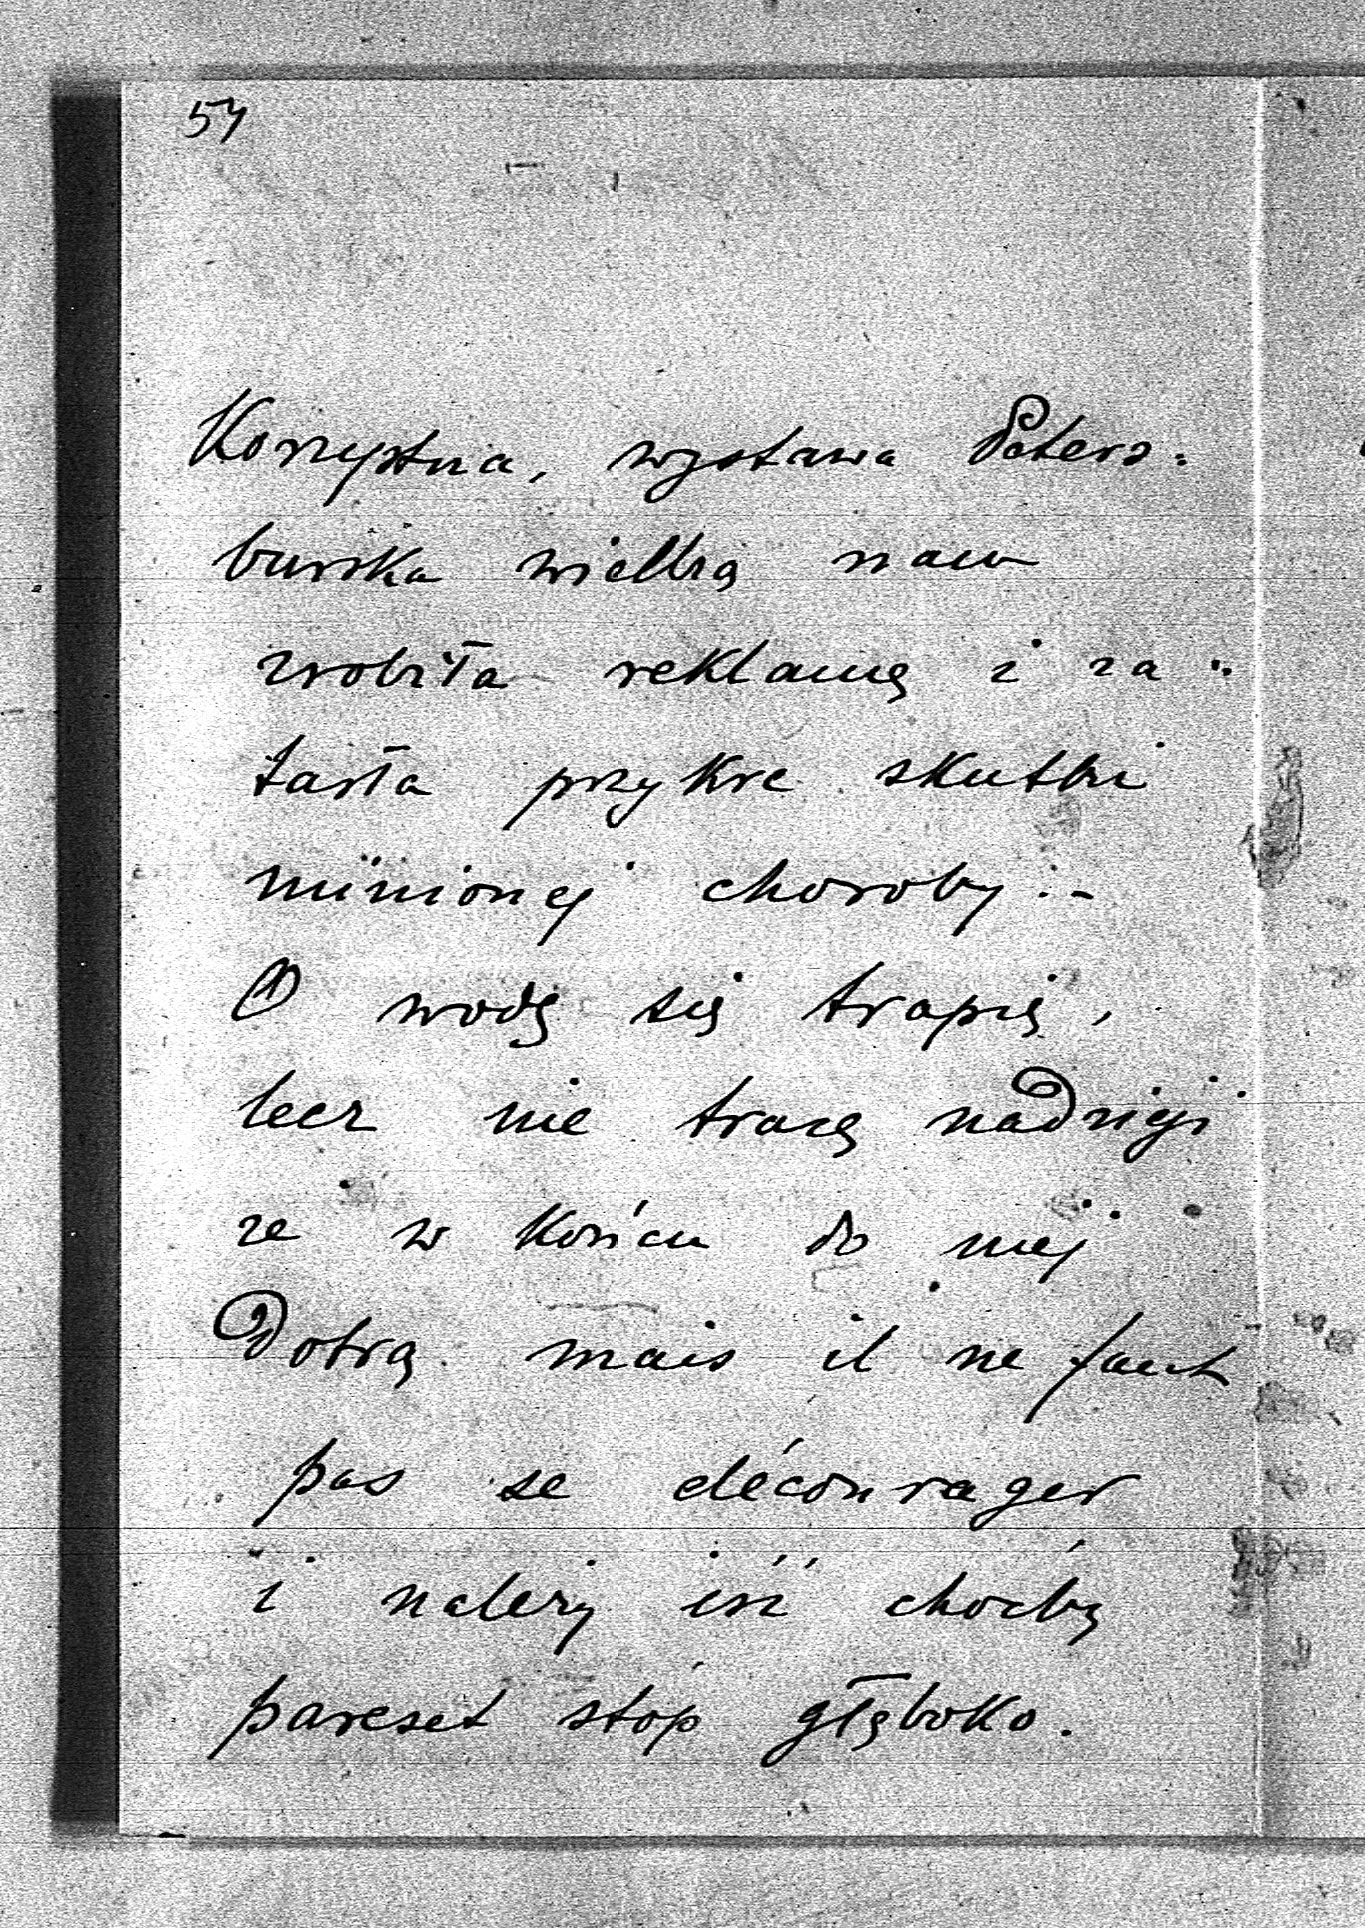 54
Korzystna, wystawa Peters-
burska wielką nam
zrobiła reklamę i za-
tarła przykre skutki
minionej choroby.-
O wodę się trapię,
lecz nie tracę nadzieji
że w końcu do niej
Dotrę mais il ne faut
pas se décourager
i należy iść choćby
pareset stóp głęboko.